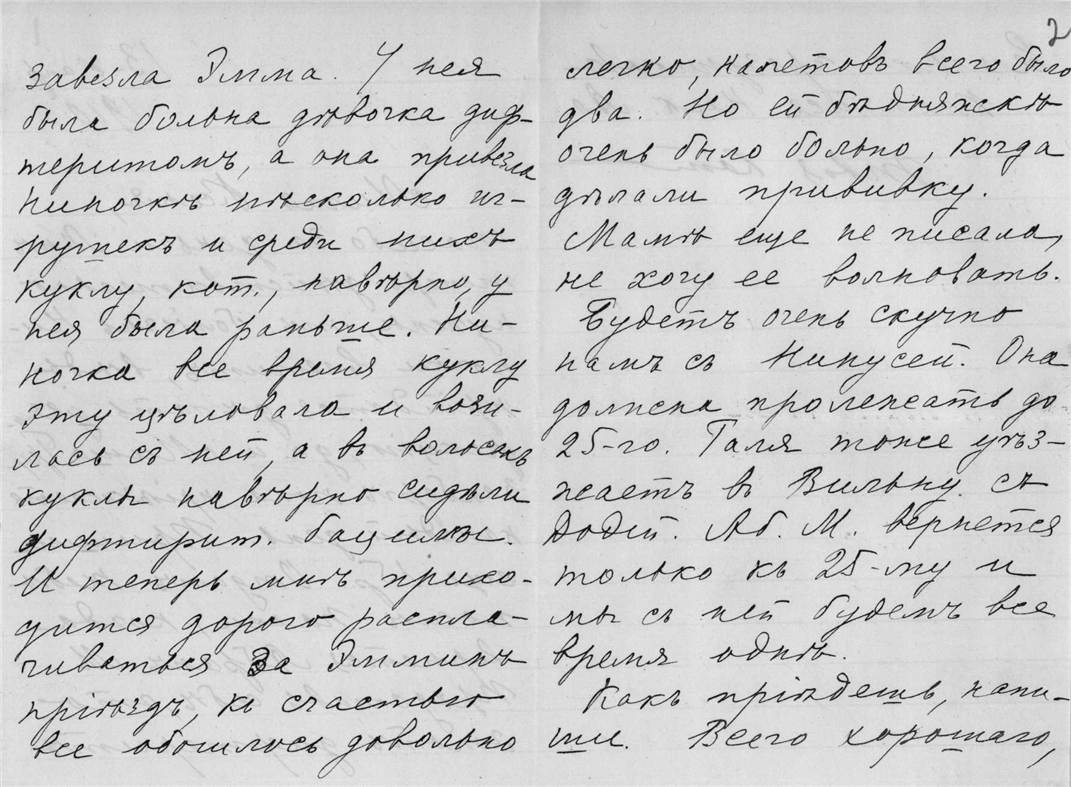 завезла Эмма. У нея
была больна дѣвочка диф-
теритомъ, а она привезла
Ниночкѣ нѣсколько иг-
рушекъ и среди нихъ
куклу, кот., навѣрно, у
нея была раньше. Ни-
ночка все время куклу
эту цѣловала и вози-
лась съ ней, а въ волосахъ
куклы навѣрно сидѣли
дифтирит. бациллы.
И теперь мнѣ прихо-
дится дорого распла-
чиваться за Эмминъ
пріѣздъ, къ счастью
все обошлось довольно
2
легко, налетовъ всего было
два. Но ей бѣдняжкѣ
очень было больно, когда
дѣлали прививку.
Мамѣ еще не писала,
не хочу ее волновать.
Будетъ очень скучно
намъ съ Нинусей. Она
должна пролежать до
25-го. Галя тоже уѣз-
жаетъ въ Вильну съ
Додей. Аб. М. вернется
только къ 25-му и
мы съ ней будемъ все
время однѣ.
Какъ пріѣдешь, напи-
ши. Всего хорошаго,